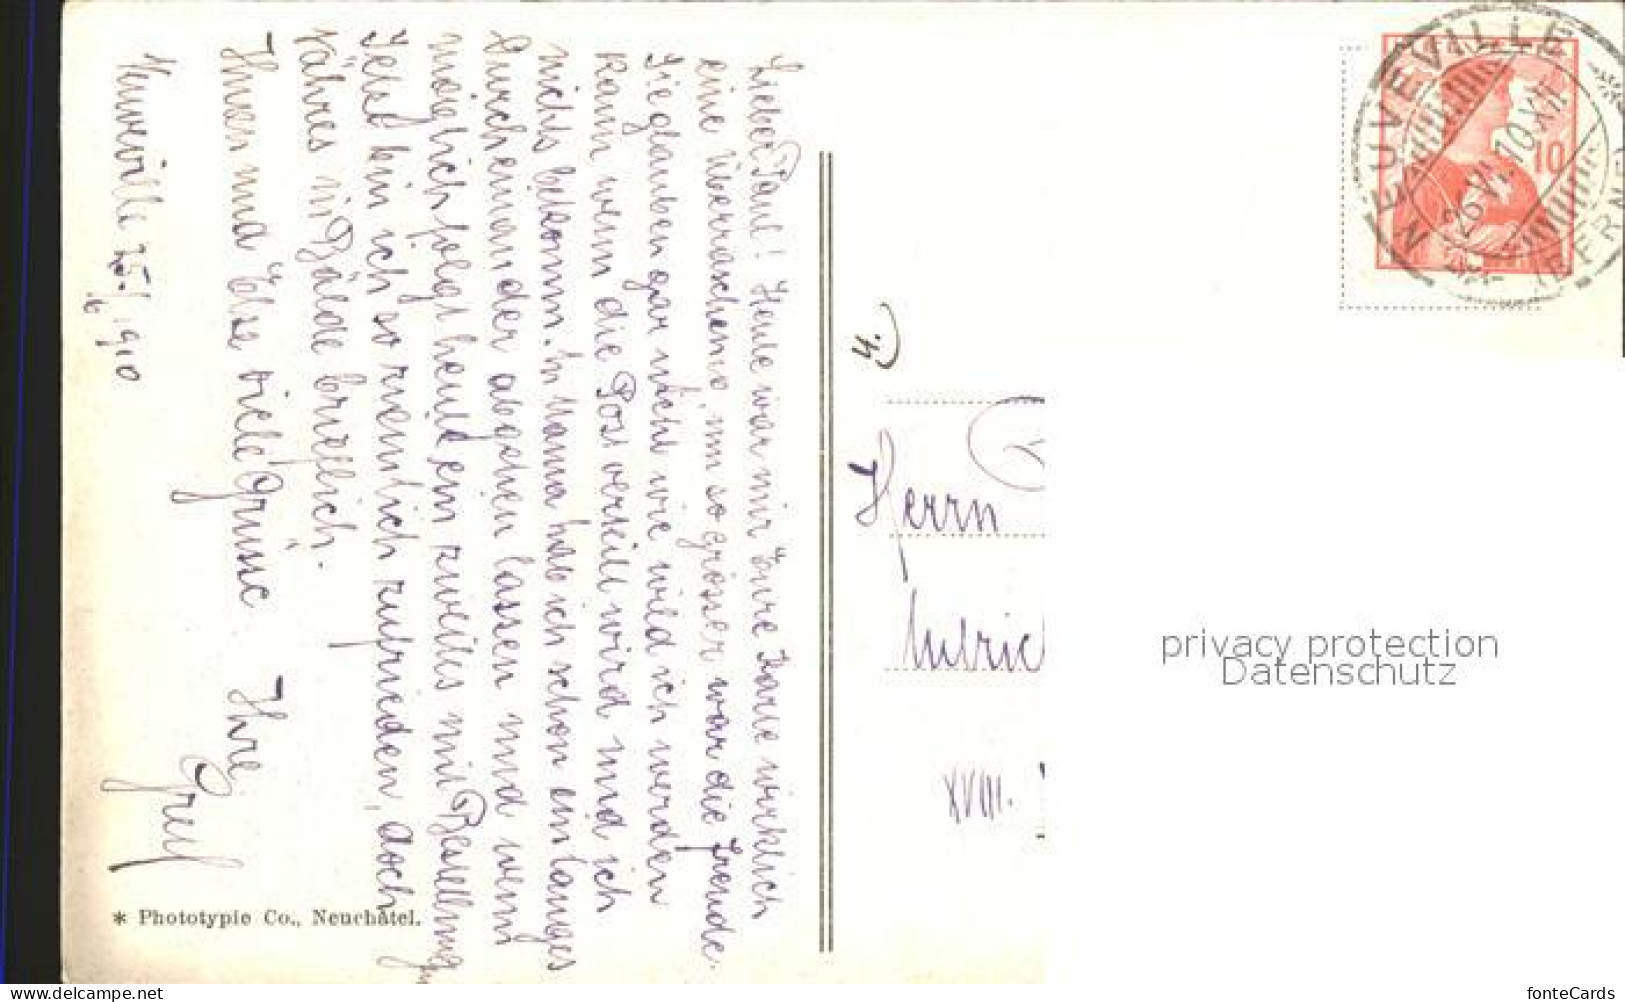 Lieber Paul! Heute war mir Eure Karte wirklich
eine Überraschung, um so grösser war die Freude.
Sie glauben gar nicht wie wild ich werden
kann wenn die Post verteilt wird und ich
nichts bekomm. Mama hab ich schon ein langes
Durcheinander abgehen lassen und wenn
möglich folgt heute ein zweites mit Bestellung
Jetzt bin ich so ziemlich zufrieden, doch
Näheres in Bälde brieflich.
Ihnen und Else viele Grüsse Ihre
Neuveville 25./6. 1910
* Phototypie Co., Neuchâtel.
NEUVEVILLE
26.VI.10.XII
(BERNE)
10
Herrn
XVIII.
privacy protection
Datenschutz
www.delcampe.net
fonteCards